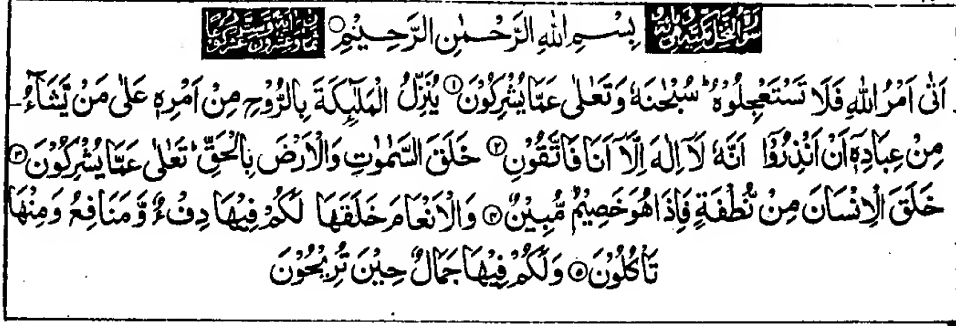 سورة النحل مكية وهي مائة بِسْمِ اللّٰهِ الرَّحْمٰنِ الرَّحِيْمِ
اَتٰۤى اَمْرُ اللّٰهِ فَلَا تَسْتَعْجِلُوْهُ ؕ سُبْحٰنَهٗ وَتَعٰلٰى عَمَّا يُشْرِكُوْنَ ۝۱ يُنَزِّلُ الْمَلٰٓئِكَةَ بِالرُّوْحِ مِنْ اَمْرِهٖ عَلٰى مَنْ يَّشَآءُ
مِنْ عِبَادِهٖۤ اَنْ اَنْذِرُوْۤا اَنَّهٗ لَاۤ اِلٰهَ اِلَّاۤ اَنَا فَاتَّقُوْنِ ۝۲ خَلَقَ السَّمٰوٰتِ وَالْاَرْضَ بِالْحَقِّ ؕ تَعٰلٰى عَمَّا يُشْرِكُوْنَ ۝۳
خَلَقَ الْاِنْسَانَ مِنْ نُّطْفَةٍ فَاِذَا هُوَ خَصِيْمٌ مُّبِيْنٌ ۝۴ وَالْاَنْعَامَ خَلَقَهَا لَكُمْ فِيْهَا دِفْءٌ وَّمَنَافِعُ وَمِنْهَا
تَاْكُلُوْنَ ۝۵ وَلَكُمْ فِيْهَا جَمَالٌ حِيْنَ تُرِيْحُوْنَ